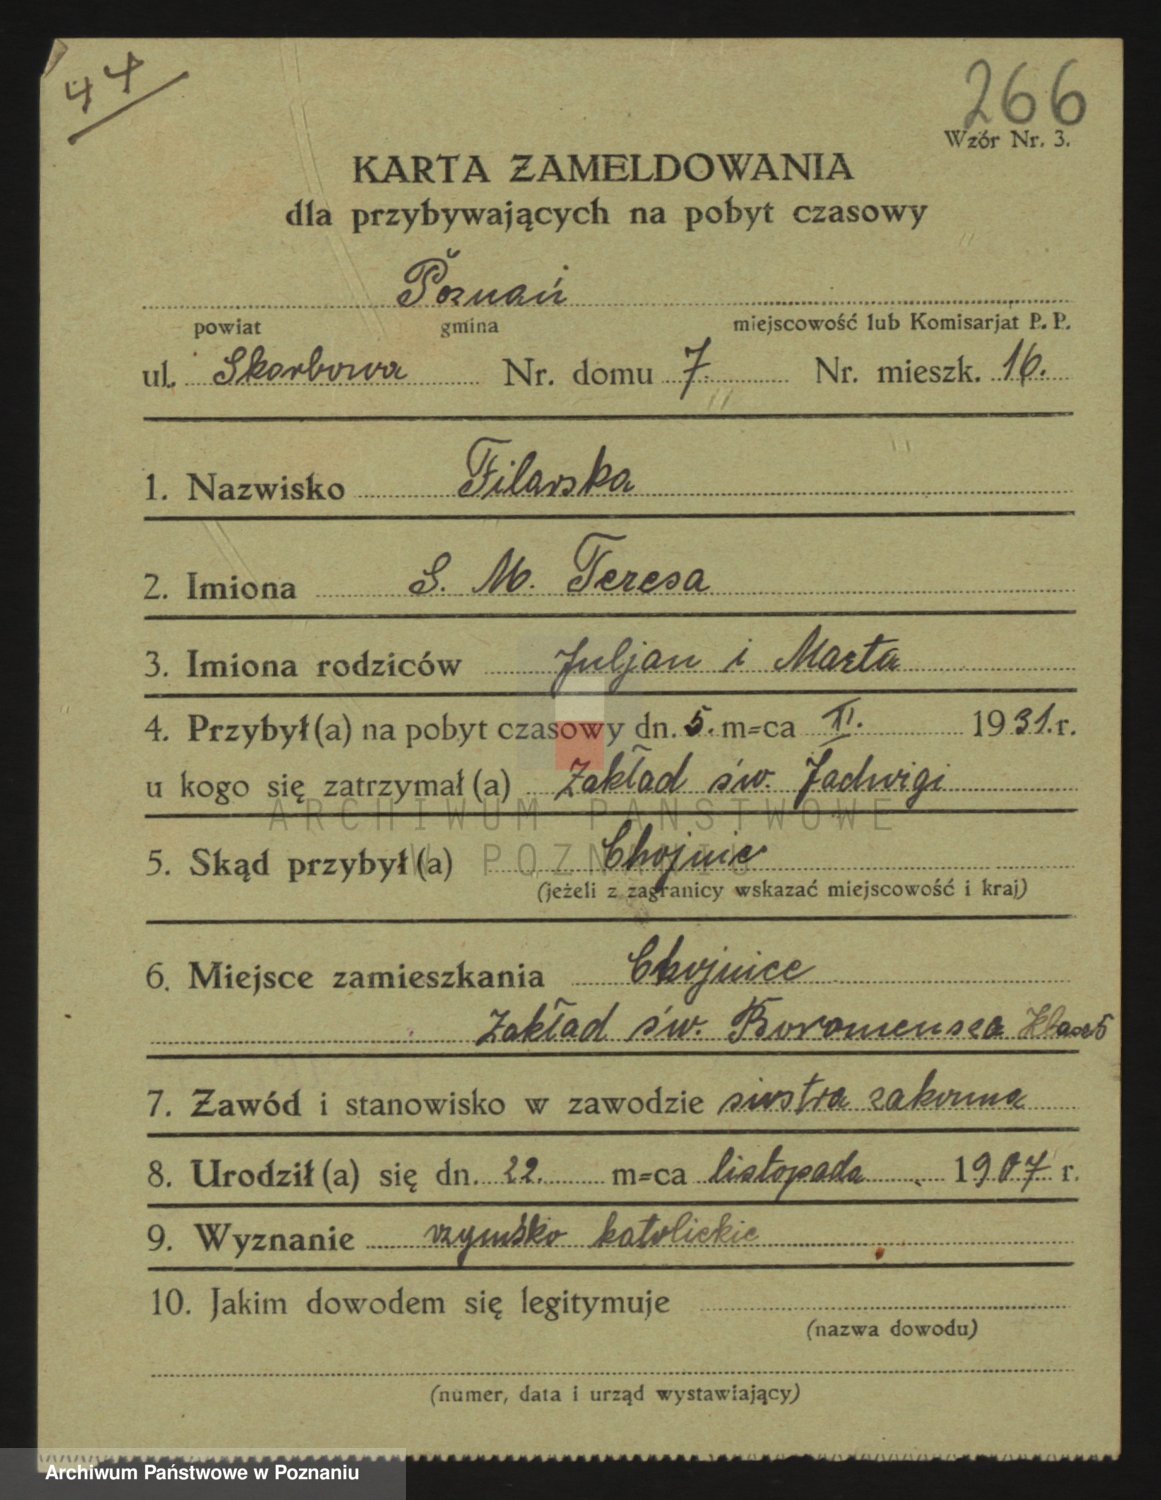 44
266
Wzór Nr. 3.
KARTA ZAMELDOWANIA
dla przybywających na pobyt czasowy
Poznań
powiat gmina miejscowość lub Komisarjat P. P.
ul. Skarbowa Nr. domu 7. Nr. mieszk. 16.
1. Nazwisko Filarska
2. Imiona S. M. Teresa
3. Imiona rodziców Juljan i Marta
4. Przybył(a) na pobyt czasowy dn. 5. m=ca XI. 1931. r.
u kogo się zatrzymał(a) Zakład św. Jadwigi
ARCHIWUM PAŃSTWOWE
W POZNANIU
5. Skąd przybył(a) Chojnic
(jeżeli z zagranicy wskazać miejscowość i kraj)
6. Miejsce zamieszkania Chojnice
Zakład św. Boromeusza
7. Zawód i stanowisko w zawodzie siostra zakonna
8. Urodził(a) się dn. 22. m=ca listopada 1907 r.
9. Wyznanie rzymsko katolickie
10. Jakim dowodem się legitymuje
(nazwa dowodu)
(numer, data i urząd wystawiający)
Archiwum Państwowe w Poznaniu